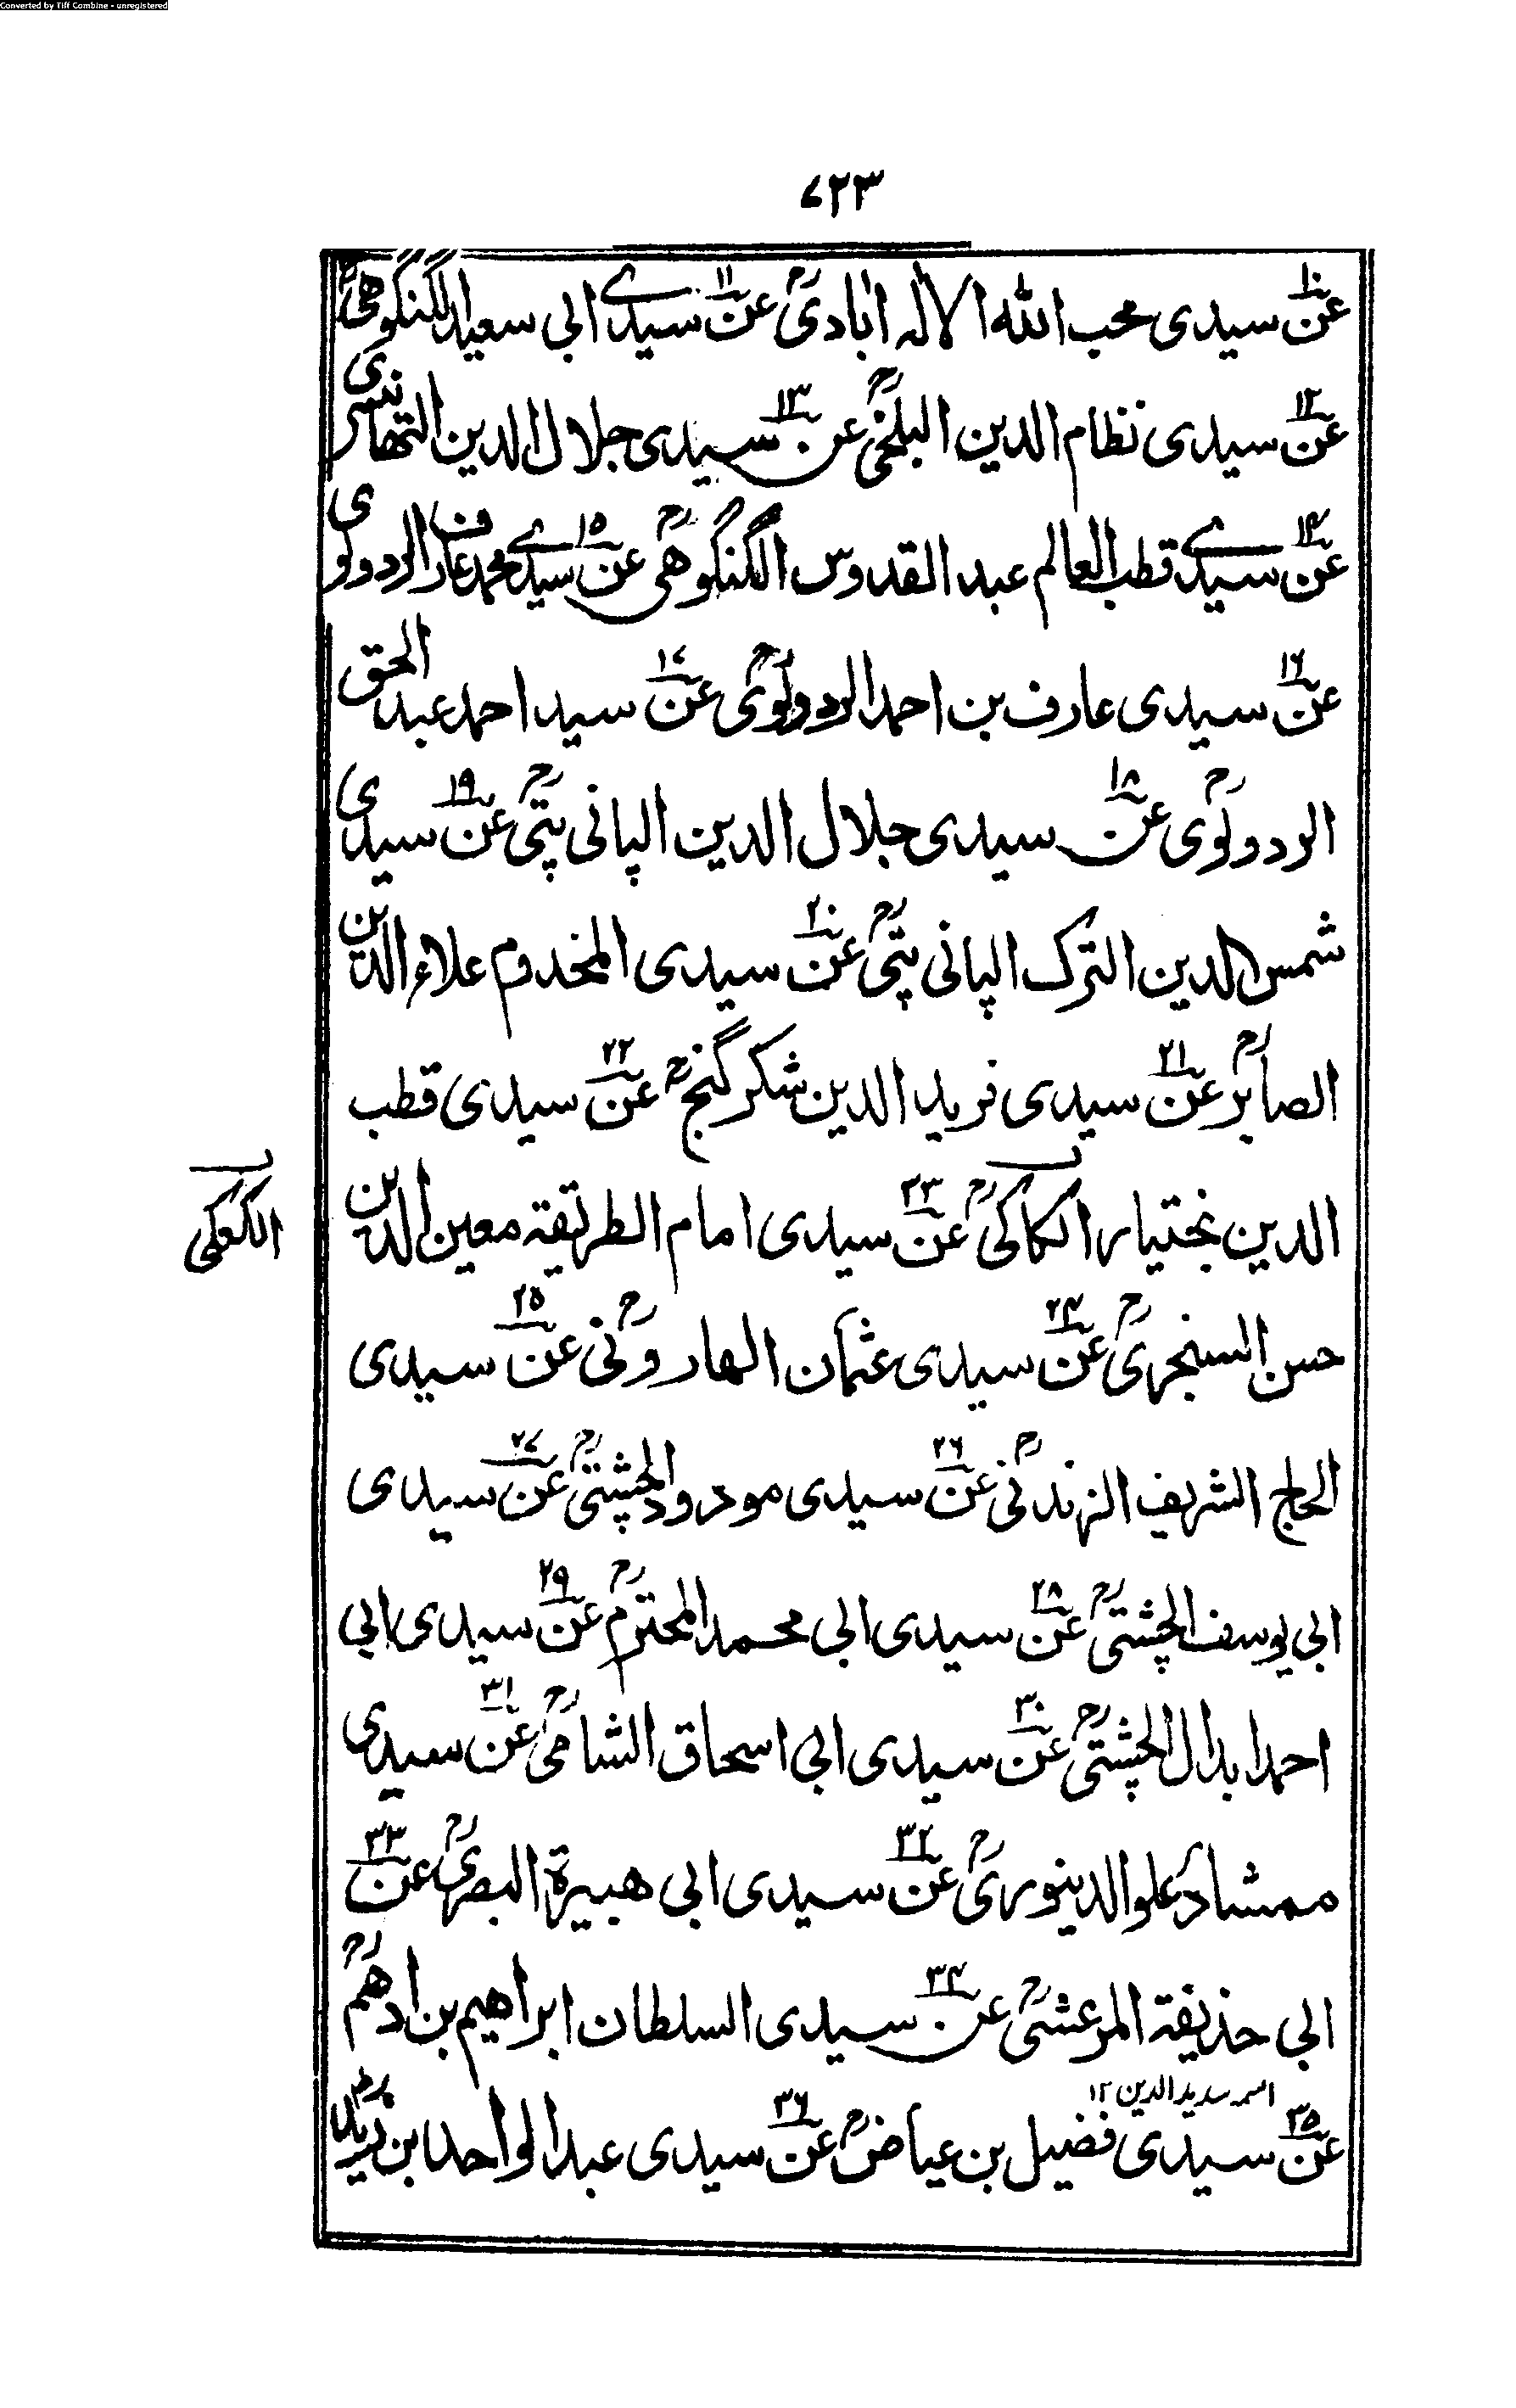 Converted by Tiff Combine - unregistered
۷۲۳
عن۱۰ سیدی محب الله الاله ابادیؒ عن۱۱ سیدے ابی سعید الگنگوهیؒ
عن۱۲ سیدی نظام الدین البلخیؒ عن۱۳ سیدی جلال الدین التهانیسری
عن۱۴ سیدے قطب العالم عبد القدوس الگنگوهیؒ عن۱۵ سیدے محمد عارف الردولوی
عن۱۶ سیدی عارف بن احمد الردولویؒ عن۱۷ سید احمد عبد الحق
الردولویؒ عن۱۸ سیدی جلال الدین الپانی پتیؒ عن۱۹ سیدی
شمس الدین الترک الپانی پتیؒ عن۲۰ سیدی المخدوم علاء الدین
الصابرؒ عن۲۱ سیدی فرید الدین شکر گنجؒ عن۲۲ سیدی قطب
الدین بختیار الکاکیؒ عن۲۳ سیدی امام الطریقة معین الدین
الکعکی
حسن السنجریؒ عن۲۴ سیدی عثمان الهارونیؒ عن۲۵ سیدی
الحاج الشریف الزندنیؒ عن۲۶ سیدی مودود الچشتیؒ عن۲۷ سیدی
ابی یوسف الچشتیؒ عن۲۸ سیدی ابی محمد المحترمؒ عن۲۹ سیدی ابی
احمد ابدال الچشتیؒ عن۳۰ سیدی ابی اسحاق الشامیؒ عن۳۱ سیدی
ممشاد علو الدینوریؒ عن۳۲ سیدی ابی هبیرة البصریؒ عن۳۳
ابی حذیفة المرعشیؒ عن۳۴ سیدی السلطان ابراهیم بن ادهمؒ
اسمہ سدید الدین ۱۲
عن۳۵ سیدی فضیل بن عیاضؒ عن۳۶ سیدی عبد الواحد بن زیدؒ